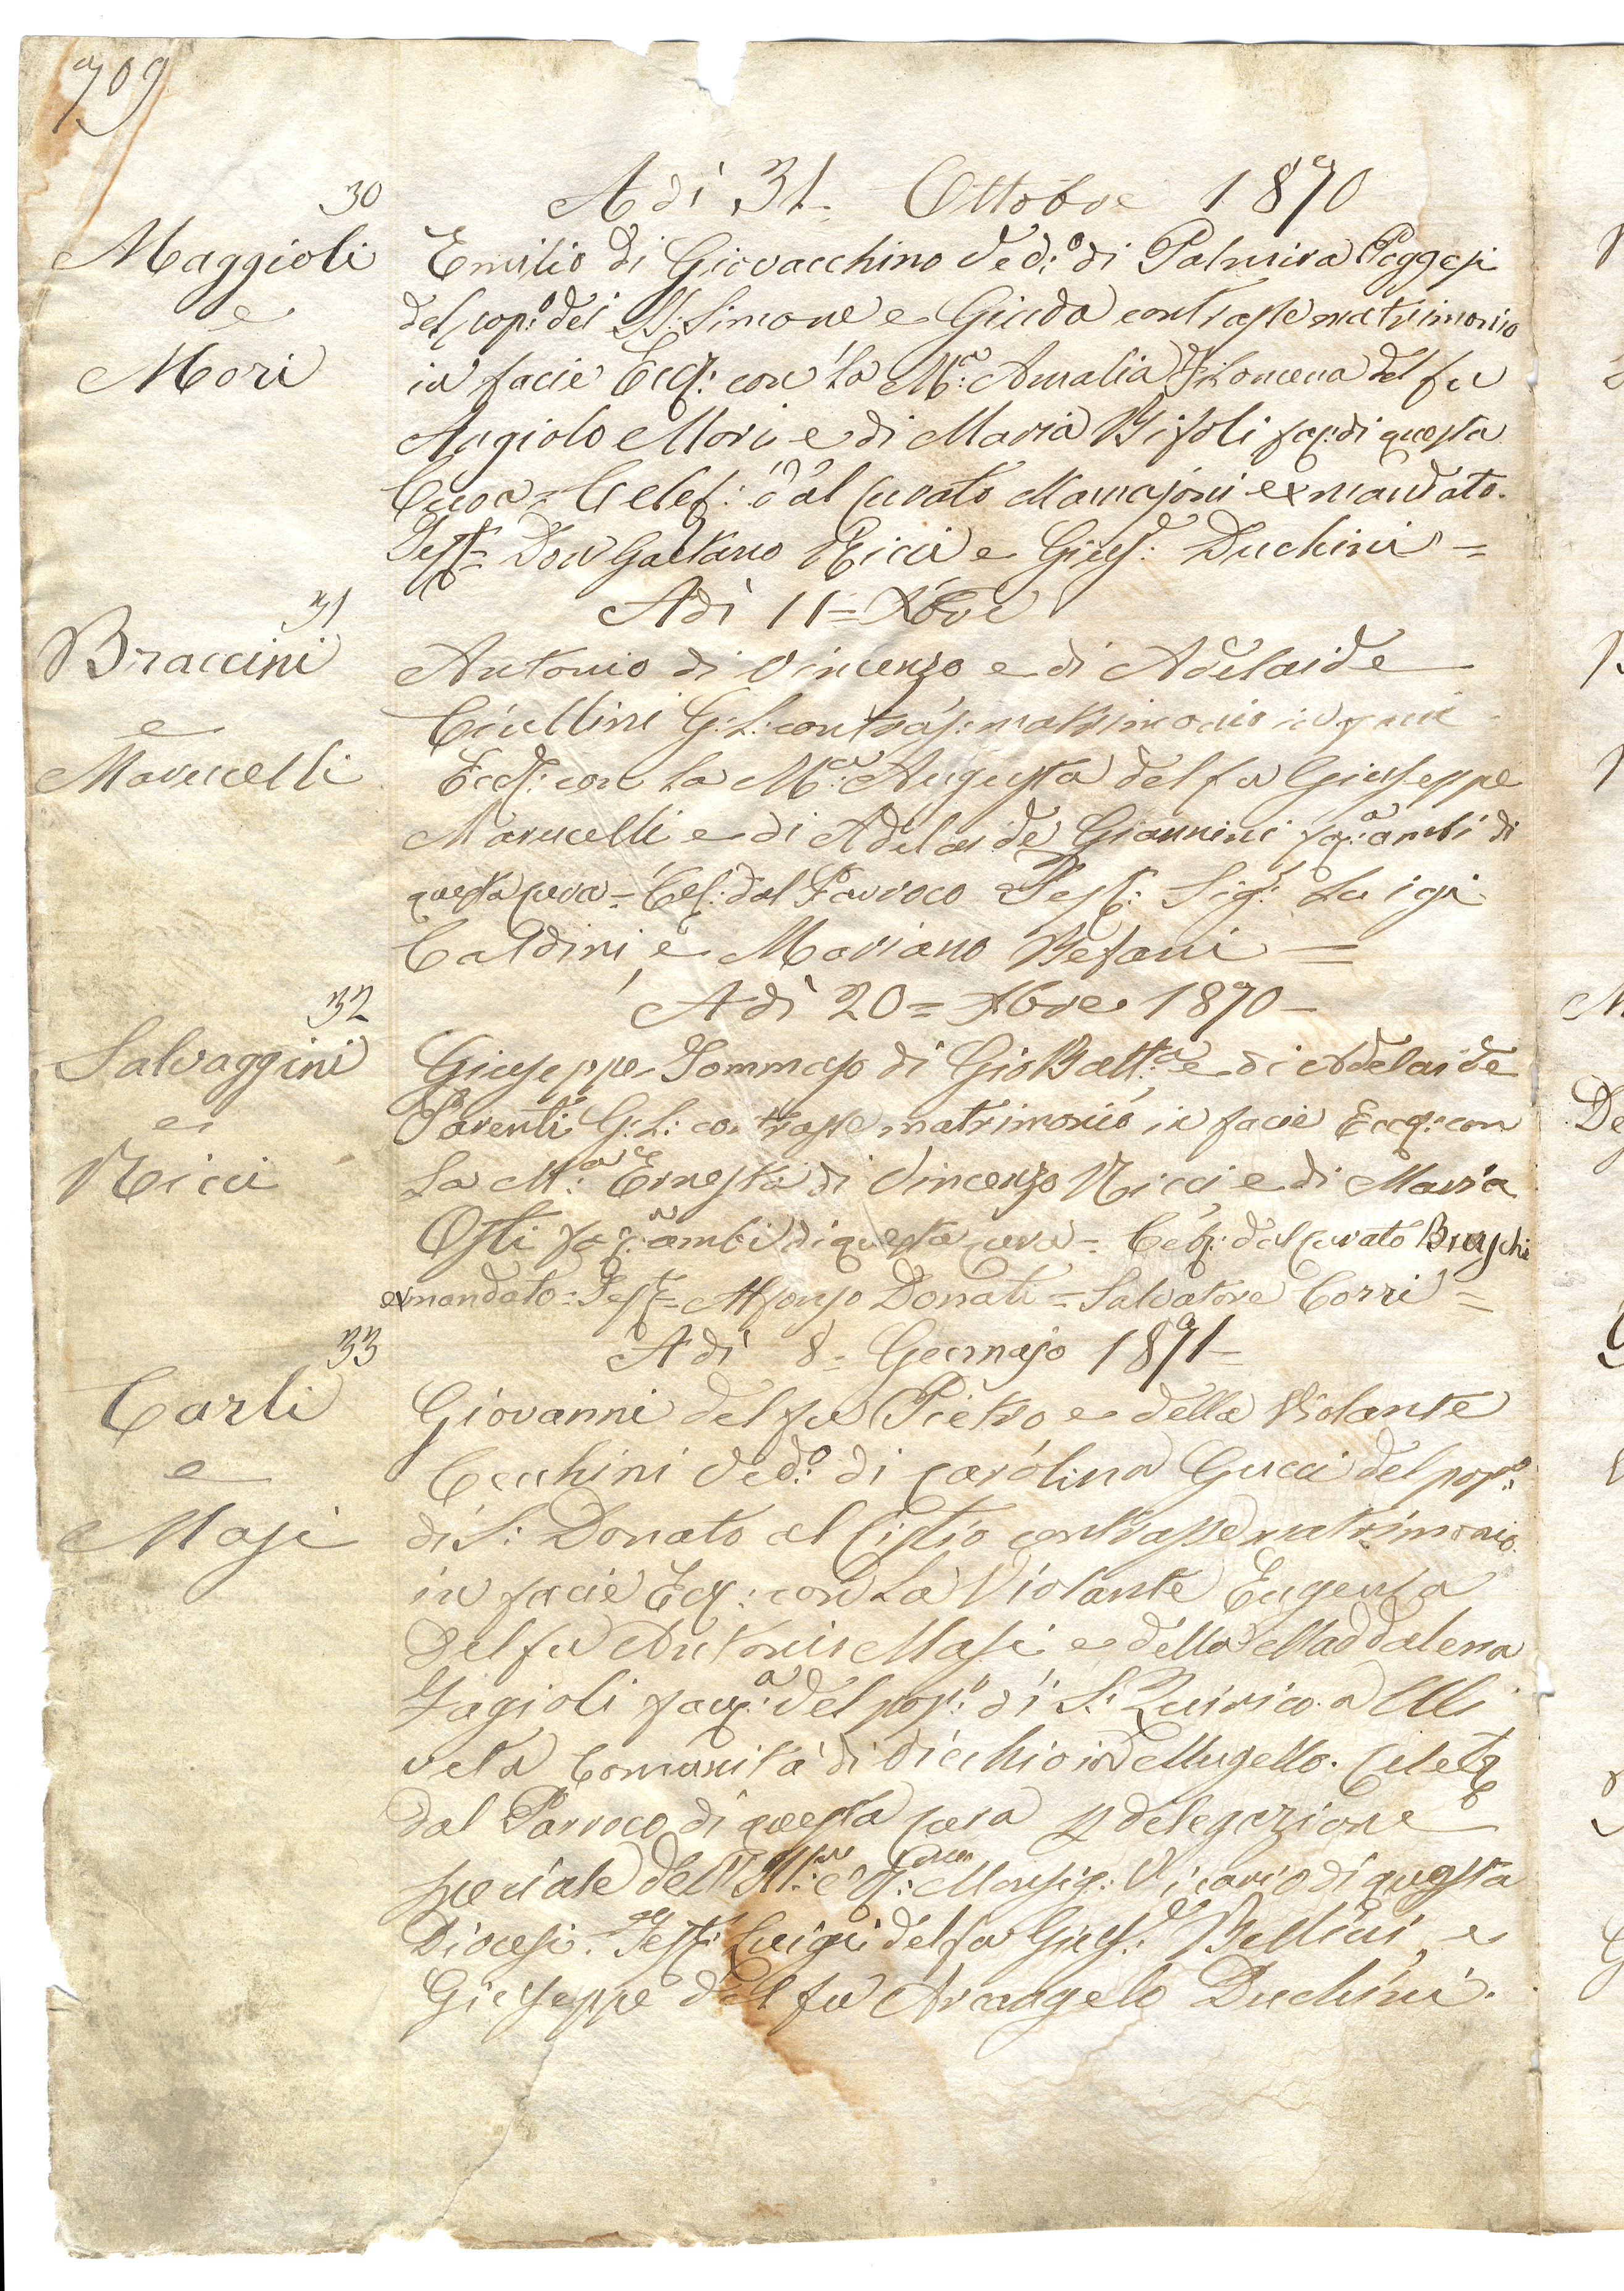 709
30
Adì 31= Ottobre 1870
Maggioli
e
Mori
Emilio di Giovacchino Ved:º di Palmira Poggesi
del pop:º dei SS: Simone e Giuda contrasse matrimonio
in facie Eccl: con la Mª: Amalia Filomena del fu
Angiolo Mori e di Maria Bifoli di questa
Cura= Celeb: dal Curato ex mandato.
Test= Don Gaetano Ricci e Gius:e Duchini =
31
Adì 11= Xbre
Braccini
e
Marucelli
Antonio di Vincenzo e di Adelaide
G: L: contras: matrimonio in facie
Eccl: con la Mª: Augusta del fu Giuseppe
Marucelli e di Adelaide Giannini ambi di
questa cura= Cel: dal Parroco Test: Sig:i Luigi
Caldini e Mariano Befani =
32
Adì 20= Xbre 1870=
Salvaggini
e
Ricci
Giuseppe Tommaso di Gio Batt:a e di Adelaide
Parenti G: L: contrasse matrimonio in facie Eccl: con
la M:a Ernesta di Vincenzo Ricci e di Maria
Osti ambi di questa cura= Celeb: dal curato Burschi
ex mandato= Test= Alfonso Donati= Salvatore Corri =
33
Adì 8= Gennajo 1871=
Carli
e
Masi
Giovanni del fu Pietro e della Violante
Cecchini Ved:º di Carolina Gucci del pop:º
di S: Donato al Cistio contrasse matrimonio
in facie Eccl: con la Violante Eugenia
del fu Antonio Masi e della Maddalena
Fagioli del pop:º di S: Quirico a Uli
veta Comunità di Vicchio in Mugello. Celeb:
dal Parroco di questa cura delegazione
speciale dell' Ill:mo e Monsig: Vicario di questa
Diocesi. Test: Luigi del fu Gius:e Bellini e
Giuseppe del fu Arcangelo Duchini.